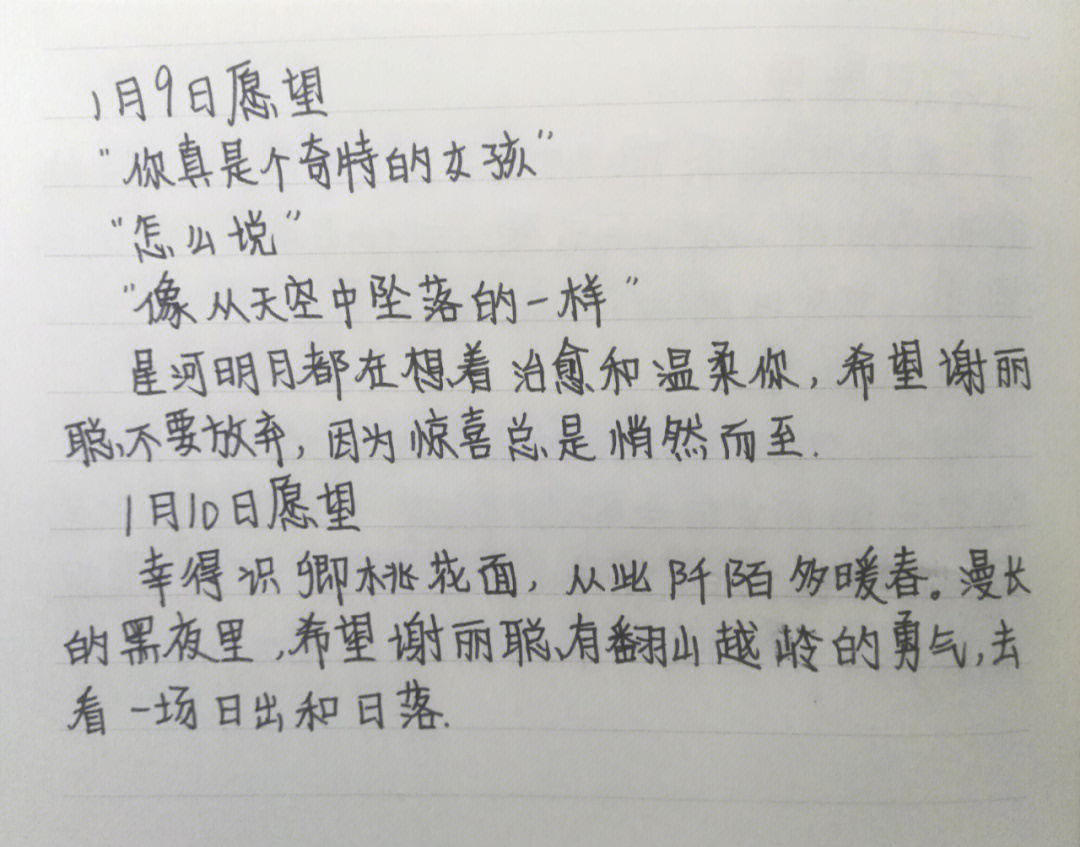 1月9日愿望
"你真是个奇特的女孩"
"怎么说"
"像从天空中坠落的一样"
星河明月都在想着治愈和温柔你,希望谢丽
聪不要放弃,因为惊喜总是悄然而至.
1月10日愿望
幸得识卿桃花面,从此阡陌多暖春。漫长
的黑夜里,希望谢丽聪有翻山越岭的勇气,去
看一场日出和日落.